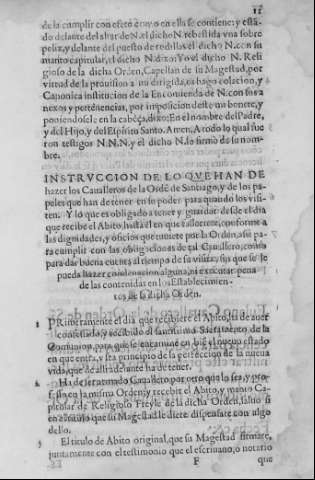 de la cumplir con efeto como en ella se contiene: y està
do delante del altar de N. el dicho N. rebestida vna sobre
peliz, y delante del puesto de rodillas el dicho N. con su
manto capitular, el dicho N. dixo: Yo el dicho N. Reli
gioso de la dicha Orden, Capellan de su Magestad, por
virtud de la prouision a mi dirigida, os hago colacion, y
Canonica institucion de la Encomienda de N. con sus a
nexos y pertenencias, por imposicion deste mi bonete, y
poniendosele en la cabeça, dixo: En el nombre del Padre,
y del Hijo, y del Espiritu Santo. Amen. A todo lo qual fue
ron testigos N. N. N. y el dicho N. lo firmò de su nom-
bre.
INSTRVCCION DE LO QVE HAN DE
hazer los Caualleros de la Ordẽ de Santiago, y de los pa-
peles que han de tener en su poder para quando los visi-
ten. Y lo que es obligado a tener y guardar desde el dia
que recibe el Abito, hasta el en que falleciere, conforme a
las dignidades, y oficios que tuuiere por la Orden, assi pa
ra cumplir con las obligaciones de tal Cauallero, como
para dar buena cuenta al tiempo de su visita, sin que se le
pueda hazer condenacion alguna, ni executar pena
de las contenidas en los Establecimien-
tos de la dicha Orden.
1 PRimeramente el dia que recibiere el Abito, ha de auer
confessado, y recibido el santissimo Sacramento de la
Comunion, para que se encamine en biẽ el nueuo estado
en que entra, y sea principio de la perfeccion de la nueua
vida, que de alli adelante ha de tener.
Ha de ser armado Cauallero por otro que lo sea, y pro-
fesso en la misma Orden, y recebir el Abito, y manto Ca-
pitular de Religioso Freyle de la dicha Orden, saluo si
en que su Magestad le diere dispensare con algo
dello.
El titulo de Abito original, que su Magestad firmare,
juntamente con el testimonio que el escriuano, o notario
F que